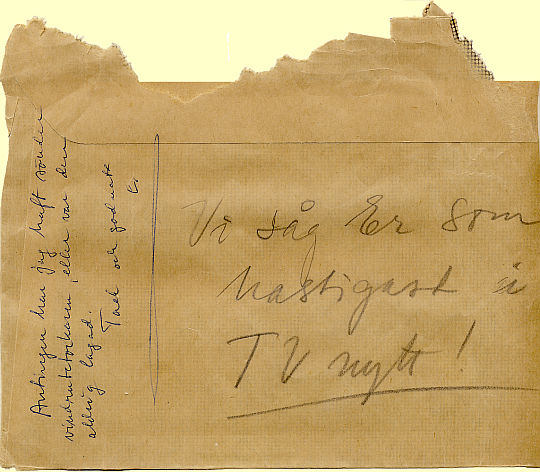 Antingen har jag haft sönder
vindrutetorkaren, eller var den
aldrig lagad.
Tack och godnatt
Vi såg Er som
hastigast i
TV nytt!